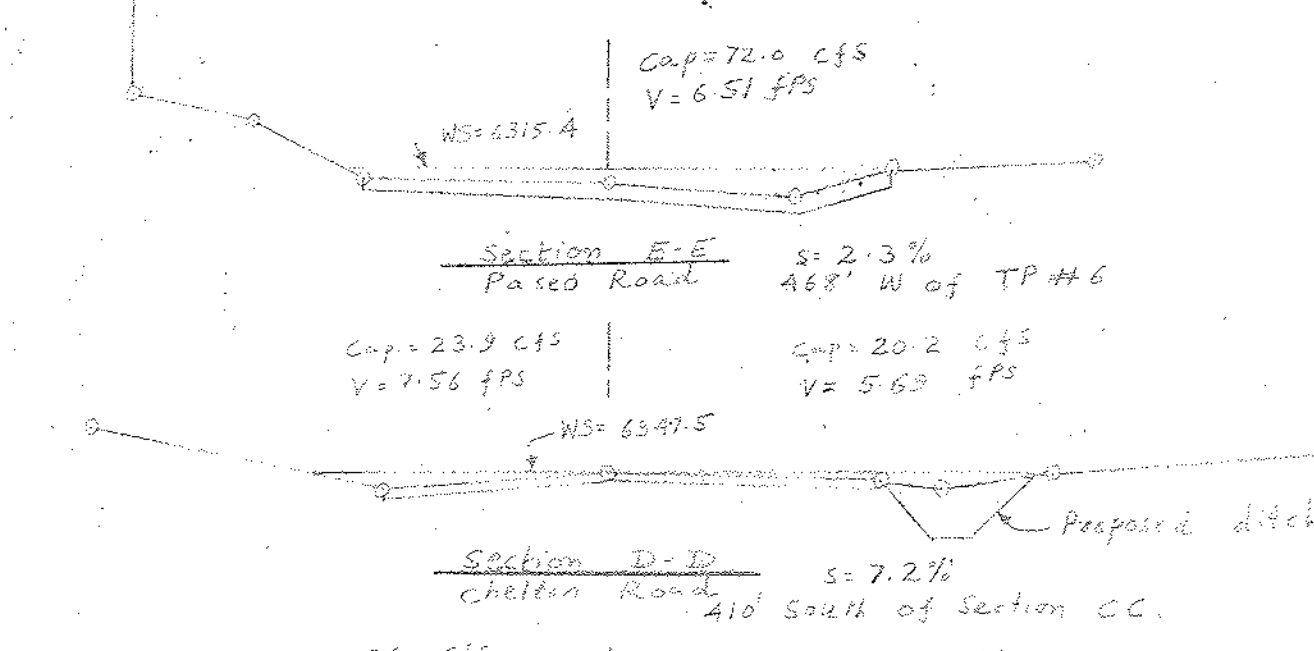 Cap=72.0 cfs
V=6.51 fps
WS=6315.4
Section E-E S=2.3%
Paseo Road 468' W of TP #6
Cap.=23.9 cfs Cap=20.2 cfs
V=7.56 fps V=5.69 fps
WS=6347.5
Proposed ditch
Section D-D S=7.2%
Chelton Road
410' South of Section CC.